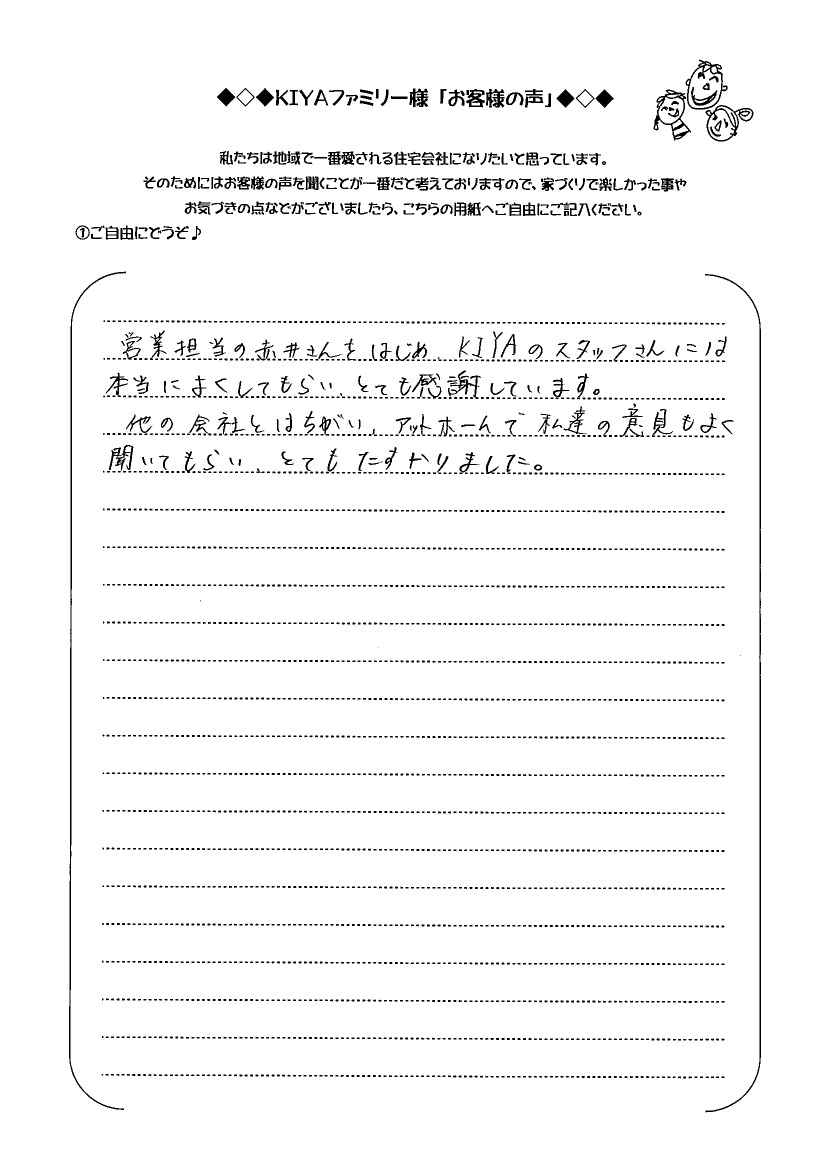 ◆◇◆KIYAファミリー様「お客様の声」◆◇◆
私たちは地域で一番愛される住宅会社になりたいと思っています。
そのためにはお客様の声を聞くことが一番だと考えておりますので、家づくりで楽しかった事や
お気づきの点などがございましたら、こちらの用紙へご自由にご記入ください。
①ご自由にどうぞ♪
営業担当の赤井さんをはじめ、KIYAのスタッフさんには
本当によくしてもらい、とても感謝しています。
他の会社とはちがい、アットホームで私達の意見もよく
聞いてもらい、とてもたすかりました。